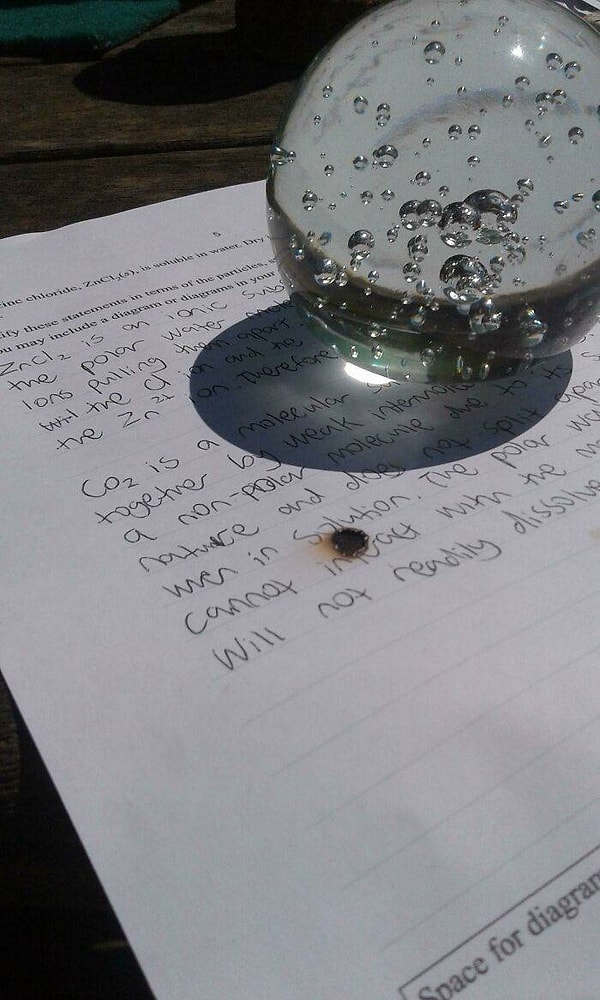 5
inc chloride, ZnCl₂(s), is soluble in water. Dry
ify these statements in terms of the particles,
ou may include a diagram or diagrams in your
ZnCl₂ is an ionic sub
the polar water mol
ions pulling them apart.
with the Cl⁻ ion and the
the Zn²⁺ ion. Therefore
CO₂ is a molecular
together by weak intermol
a non-polar molecule due to it
nature and does not split apar
when in solution. The polar wa
cannot interact with the mo
will not readily dissolve
Space for diagram